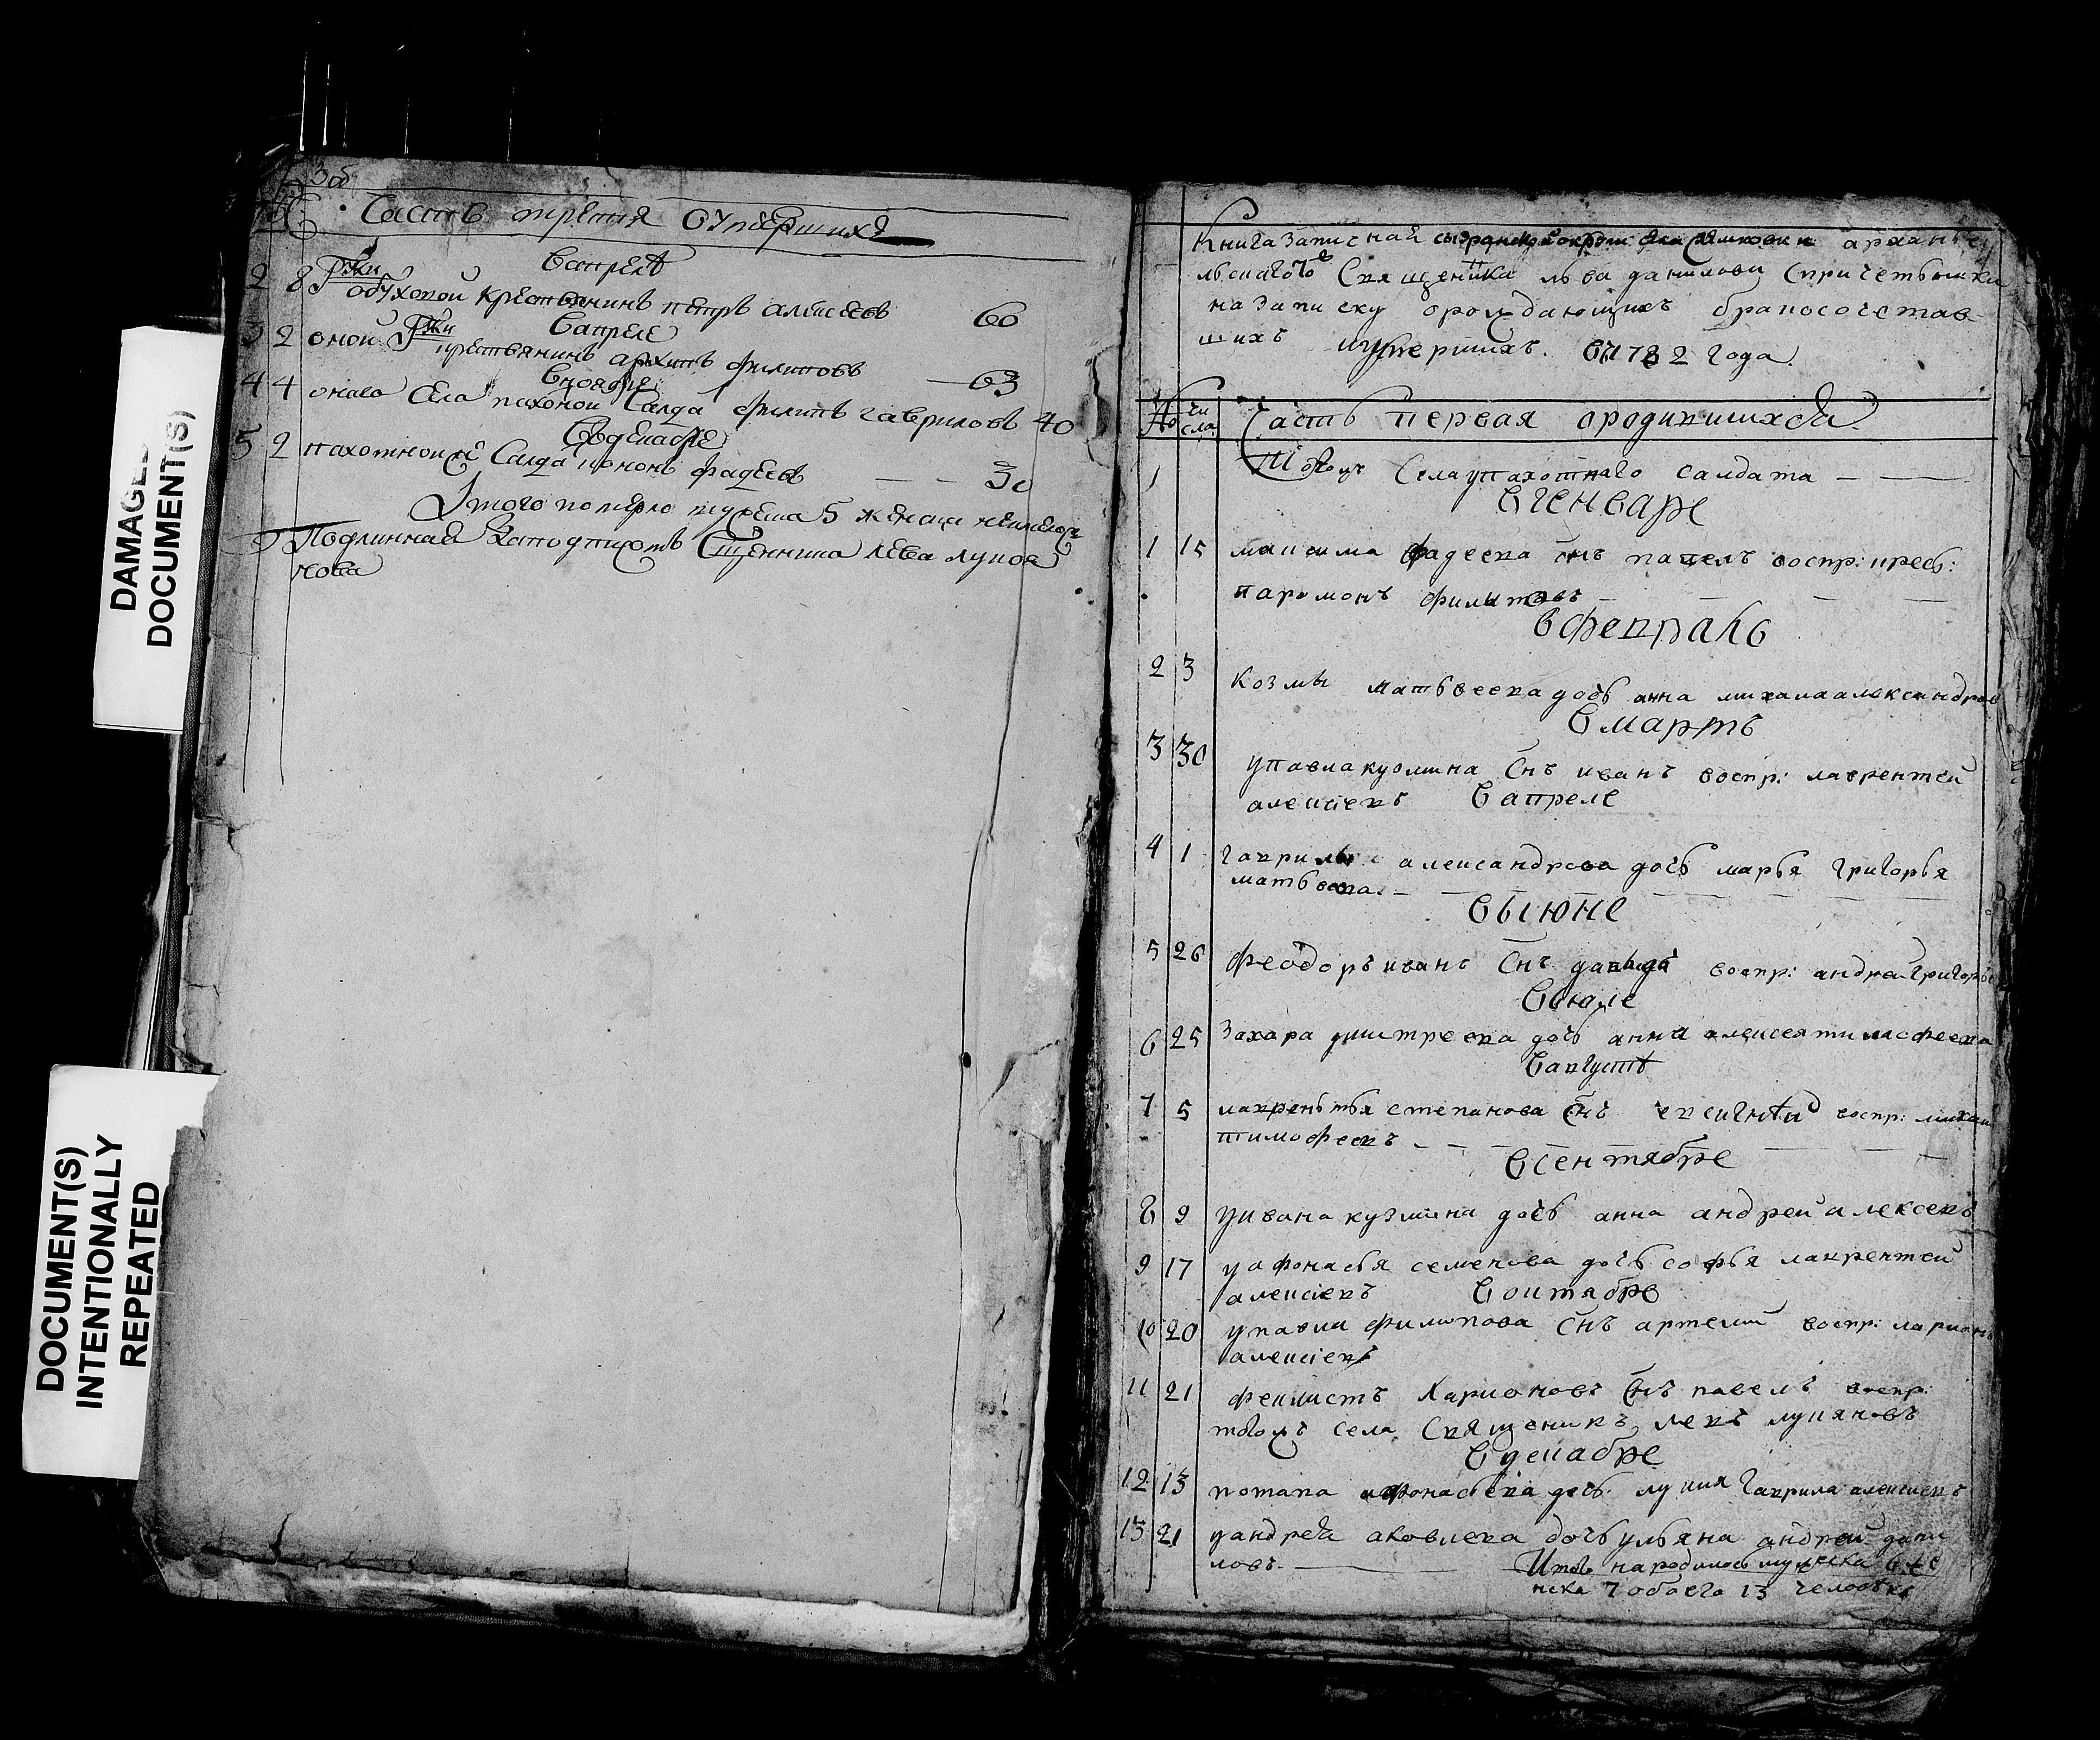 DAMAGED
DOCUMENT(S)
DOCUMENT(S)
INTENTIONALLY
REPEATED
3 об
Часть третия оумершихъ
Вапреле
2 8 Гжи обуховой крестьянинъ петръ алексеевъ 60
Вапреле
3 2 оной Гжи крестьянинъ архипъ филиповъ — 63
Вноябре
4 4 онаго села пахотной салда филипъ гавриловъ 40
Вдекабре
5 2 пахотной салда фадеевъ — — 30
Итого померло мужеска 5 женска
Подлинная Священника лева лукоя
нова
Книга записная архангел
льскаго Священника льва данилова спричетники
на записку ораждающихъ бракосочетав
шихъ иумершихъ. 1782 года
№ чи сла Часть первая ородившихся
1 Села упахотнаго салдата — —
Вгенваре
1 15 максима фадеева снъ павелъ воспр: 
парамонъ филиповъ — — — —
вфевраль
2 3 козмы матвеева дочь анна михаила александров
Вмартъ
3 30 упавла кузмина снъ иванъ воспр: лаврентей
алексиевъ Вапреле
4 1 гаврилы александрова дочь марья григорья
матвеева. — — — —
Выюне
5 26 феодоръ иванъ снъ давидъ воспр: андрей григорье
Виюле
6 25 захара дмитреева дочь анна алексея тимофеева
Вавгусте
7 5 лаврентья степанова снъ евсигней воспр: михаи
тимофеевъ — — — —
Всентябре
8 9 уивана кузмина дочь анна андрей алексеевъ
9 17 уафонасья семенова дочь софья лаврентей
алексиевъ Воктябре
10 20 упавла филипова снъ артемий воспр: ларионъ
алексиевъ
11 21 феклистъ Ларионовъ снъ павелъ воспр:
тогожъ села Священикъ левъ лукяновъ
Вдекабре
12 13 потапа афонасьева дочь лукия гаврила алексиевъ
13 21 уандрея яковлева дочь ульяна андрей дани
ловъ. — — Итого народилось мужеска 6 же
нска 7 обоего 13 человекъ